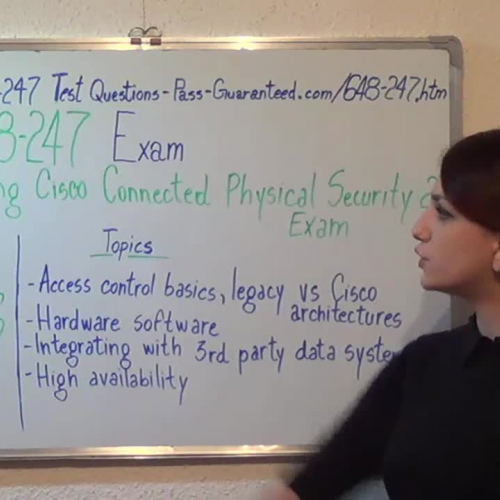 -247 Test Questions - Pass-Guaranteed.com/648-247.htm
8-247 Exam
ng Cisco Connected Physical Security 2
Exam
Topics
- Access control basics, legacy vs Cisco
architectures
- Hardware software
- Integrating with 3rd party data syste
- High availability